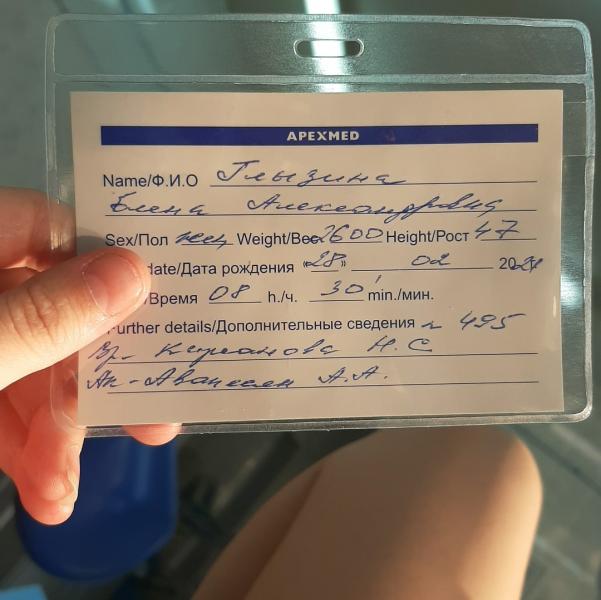 APEXMED
Name/Ф.И.О Глызина
Елена Александровна
Sex/Пол жен Weight/Вес 2600 Height/Рост 47
date/Дата рождения «28» 02 2021
/Время 08 h./ч. 30 min./мин.
Further details/Дополнительные сведения № 495
Вр- Н.С
Ак- Аванесян А.А.